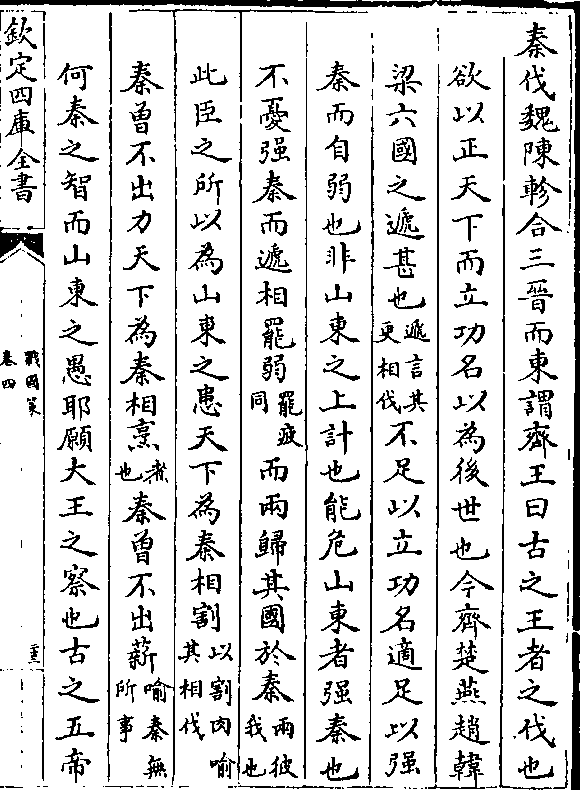 秦伐魏陳軫合三晉而東謂齊王曰古之王者之伐也
欲以正天下而立功名以為後世也今齊楚燕趙韓
梁六國之遞甚也遞言其更相伐不足以立功名適足以强
秦而自弱也非山東之上計也能危山東者强秦也
不憂强秦而遞相罷弱罷疲同而兩歸其國於秦兩彼我也
此臣之所以為山東之患天下為秦相割以割肉喻其相伐
秦曽不出力天下為秦相烹煮也秦曽不出薪喻秦無所事
何秦之智而山東之愚耶願大王之察也古之五帝
欽定四庫全書
戰國策
卷四